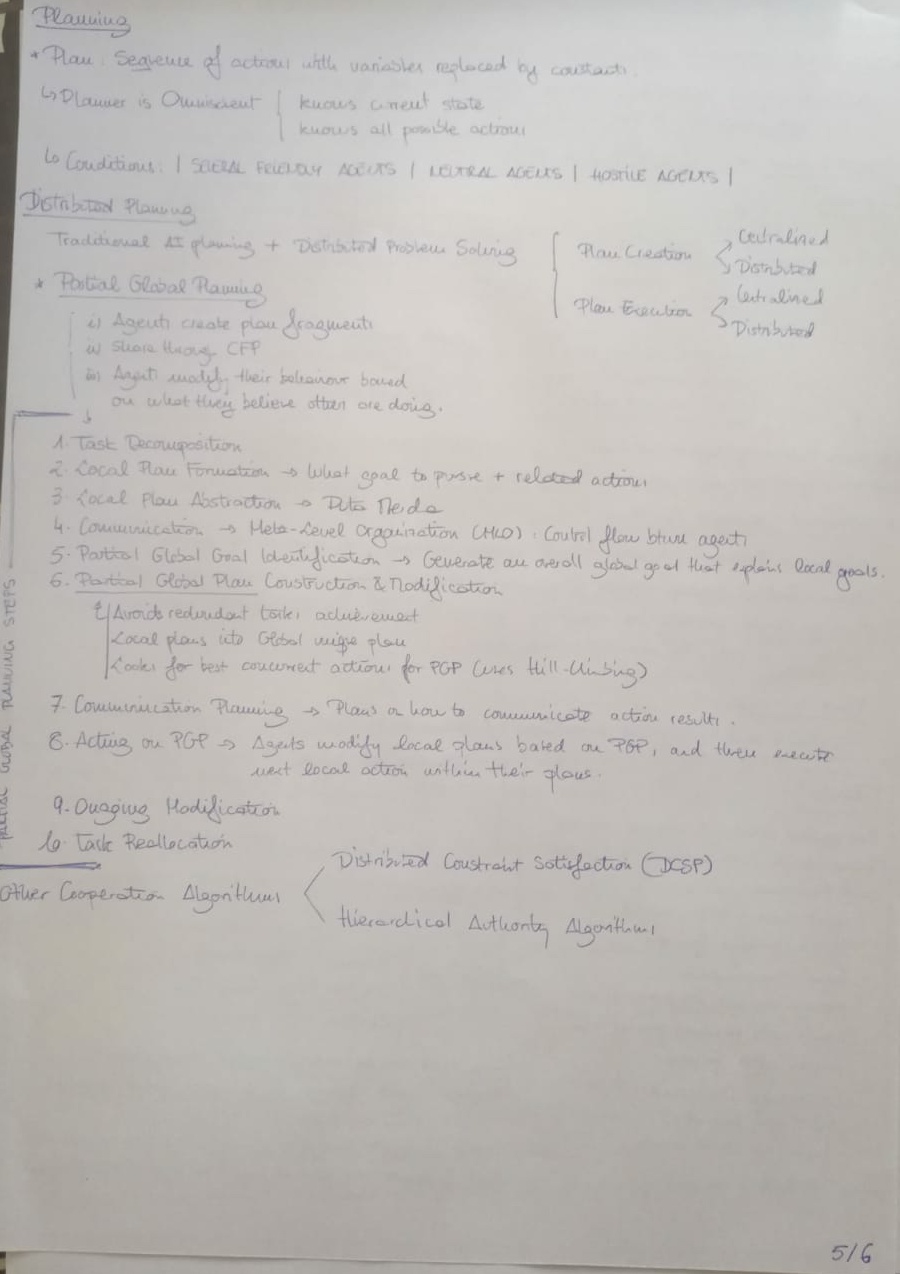 Planning
* Plan: Sequence of actions with variables replaced by constants.
↳ Planner is Omniscient { knows current state
knows all possible actions
↳ Conditions: | SEVERAL FRIENDLY AGENTS | NEUTRAL AGENTS | HOSTILE AGENTS |
Distributed Planning
Traditional AI planing + Distributed Problem Solving
Plan Creation
Centralined
Distributed
Plan Execution
Centralined
Distributed
* Partial Global Planning
i) Agents create plan fragments
ii) Share throug CFP
iii) Agents modify their behaviour based
on what they believe others are doing.
PARTIAL GLOBAL PLANNING STEPS
1. Task Decomposition
2. Local Plan Formation → What goal to pursue + related actions
3. Local Plan Abstraction → Data Needs
4. Communication → Meta-Level Organization (MLO): Control flow btwn agents
5. Partial Global Goal Identification → Generate an overall global goal that explains local goals.
6. Partial Global Plan Construction & Modification
Avoids redundant tasks achievement
Local plans into Global unique plan
Looks for best concurrent actions for PGP (uses Hill-Climbing)
7. Communication Planning → Plans on how to communicate action results.
8. Acting on PGP → Agents modify local plans based on PGP, and then execute
next local action within their plans.
9. Ongoing Modification
10. Task Reallocation
Other Cooperation Algorithms
Distributed Constraint Satisfaction (DCSP)
Hierarchical Authority Algorithms
5/6